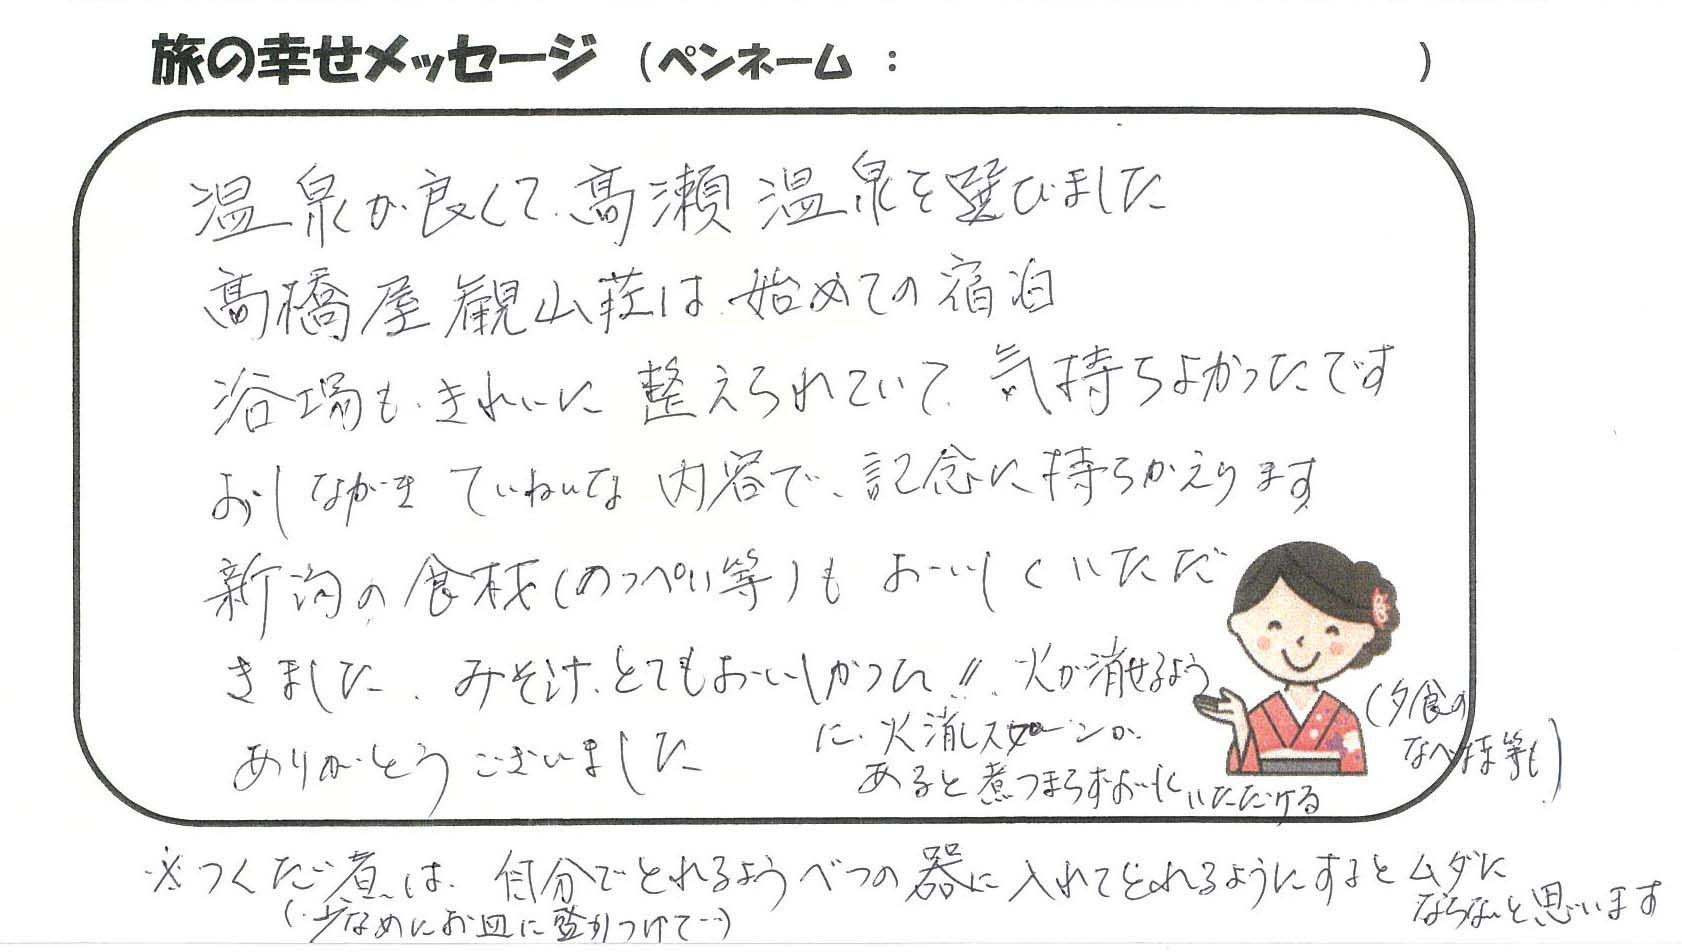 旅の幸せメッセージ （ペンネーム ： ）
温泉が良くて、高瀬温泉を選びました
高橋屋観山荘は、始めての宿泊
浴場も、きれいに整えられていて、気持ちよかったです
おしながき ていねいな内容で、記念に持ちかえります
新潟の食材（のっぺい等）も おいしくいただ
きました、みそ汁、とてもおいしかった!!
ありがとうございました
火が消せるよう
に、火消しスプーンが
あると煮つまらずおいしくいただける
（夕食の
なべ 等も）
※つくだ煮は、自分でとれるようべつの器に入れてとれるようにするとムダに
ならないと思います
（少なめにお皿に盛りつけて…）